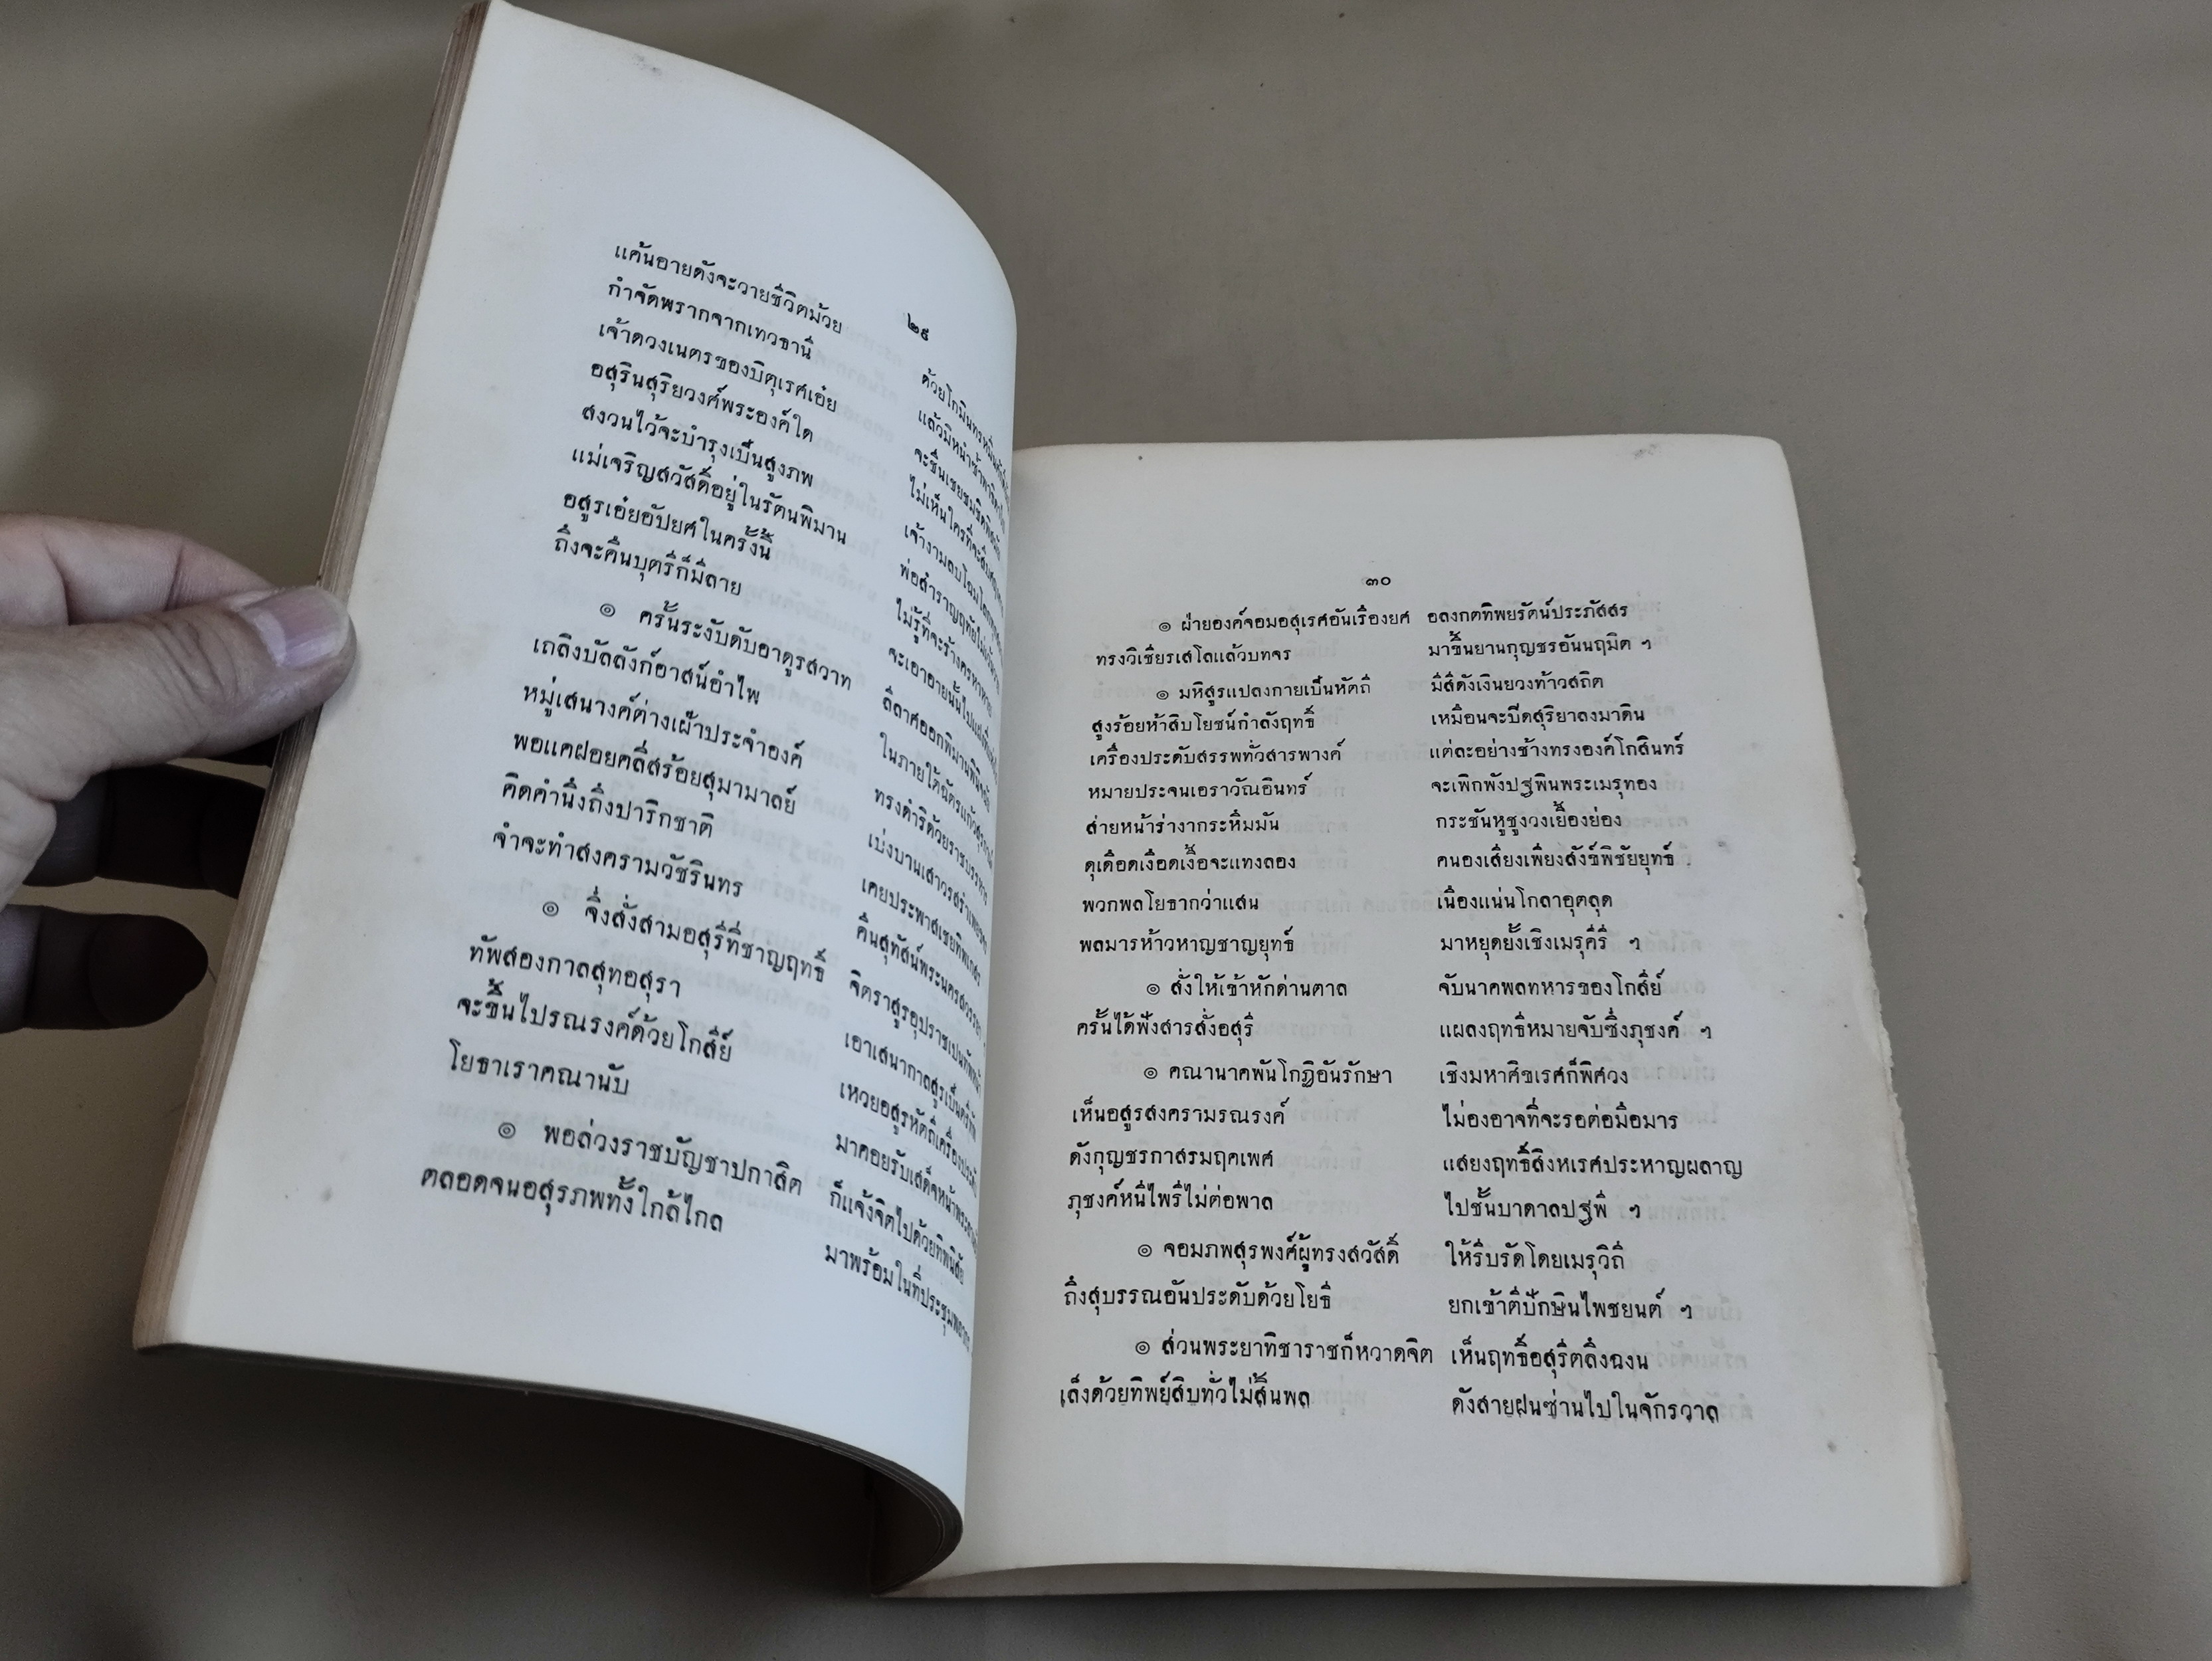 ๒๙
แค้นอายดังจะวายชีวิตม้วย
กำจัดพรากจากเทวธานี
เจ้าดวงเนตรของบิตุเรศเอ๋ย
อสุรินสุริยวงศ์พระองค์ใด ไม่เห็นใครที่จะ
สงวนไว้จะบำรุงเป็นสูงภพ
แม่เจริญสวัสดิ์อยู่ในรัตนพิมาน พ่อสำราญฤทัย
อสูรเอ๋ยอัปยศในครั้งนี้ ไม่รู้ที่จะร้าง
ถึงจะคืนบุตรีก็มีลาย จะเอาอายนั้นไป
๏ ครั้นระงับดับอาดูรสวาท ลีลาศออกพิมาน
เถลิงบัลลังก์อาสน์อำไพ ในภายใต้ฉัตรแก้ว
หมู่เสนางค์ต่างเฝ้าประจำองค์ ทรงดำริด้วยราชบรรหาร
พอแคฝอยคลี่สร้อยสุมามาลย์ เบ่งบานเสาวรส
คิดคำนึงถึงปาริกชาติ เคยประพาสเชยทิพเกสร
จำจะทำสงครามวัชรินทร คืนสุทัสน์พระนครสวรรยา ฯ
๏ จึ่งสั่งสามอสุรีที่ชาญฤทธิ์ จิตราสูรอุปราชเปนทัพหน้า
ทัพสองกาลสุทอสุรา เอาเสนากาลสูรเป็นตรีทัพ
จะขึ้นไปรณรงค์ด้วยโกสีย์ เหวยอสูรหัตถีเครื่องประดับ
โยธาเราคณานับ มาคอยรับเสด็จหน้าพระลาน
๏ พอล่วงราชบัญชาปกาสิต ก็แจ้งจิตไปด้วยทิพนิสัย
ตลอดจนอสุรภพทั้งใกล้ไกล มาพร้อมในที่ประชุม
๓๐
๏ ฝ่ายองค์จอมอสุเรศอันเรืองยศ อลงกตทิพยรัตน์ประภัสสร
ทรงวิเชียรเสโลแล้วบทจร มาขึ้นยานกุญชรอันนฤมิต ฯ
๏ มหิสูรแปลงกายเป็นหัตถี มีสีดังเงินยวงท้าวสถิต
สูงร้อยห้าสิบโยชน์กำลังฤทธิ์ เหมือนจะบีดสุริยาลงมาดิน
เครื่องประดับสรรพทั่วสารพางค์ แต่ละอย่างช้างทรงองค์โกสินทร์
หมายประจนเอราวัณอินทร์ จะเพิกพังปฐพินพระเมรุทอง
ส่ายหน้าร่างากระหึมมัน กระชันหูชูงวงเยื้องย่อง
ดุเดือดเงือดเงื้อจะแทงลอง คนองเสียงเพียงสังข์พิชัยยุทธ์
พวกพลโยธากว่าแสน เนืองแน่นโกลาอุตลุด
พลมารห้าวหาญชาญยุทธ์ มาหยุดยั้งเชิงเมรุคีรี ฯ
๏ สั่งให้เข้าหักด่านตาล จับนาคพลทหารของโกสีย์
ครั้นได้ฟังสารสั่งอสุรี แผลงฤทธิ์หมายจับซึ่งภุชงค์ ฯ
๏ คณานาคพันโกฏิอันรักษา เชิงมหาศิขเรศก็พิศวง
เห็นอสูรสงครามรณรงค์ ไม่องอาจที่จะรอต่อมือมาร
ดังกุญชรกาสรมฤคเพศ แสยงฤทธิ์สิงหเรศประหาญผลาญ
ภุชงค์หนีไพรีไม่ต่อพาล ไปชั้นบาดาลปฐพี ฯ
๏ จอมภพสุรพงศ์ผู้ทรงสวัสดิ์ ให้รีบรัดโดยเมรุวิถี
ถึงสุบรรณอันประดับด้วยโยธี ยกเข้าตีปักษินไพชยนต์ ฯ
๏ ส่วนพระยาทิชาราชก็หวาดจิต เห็นฤทธิ์อสุรีตลึงฉงน
เล็งด้วยทิพย์สิบทั่วไม่สิ้นพล ดังสายฝนซ่านไปในจักรวาล